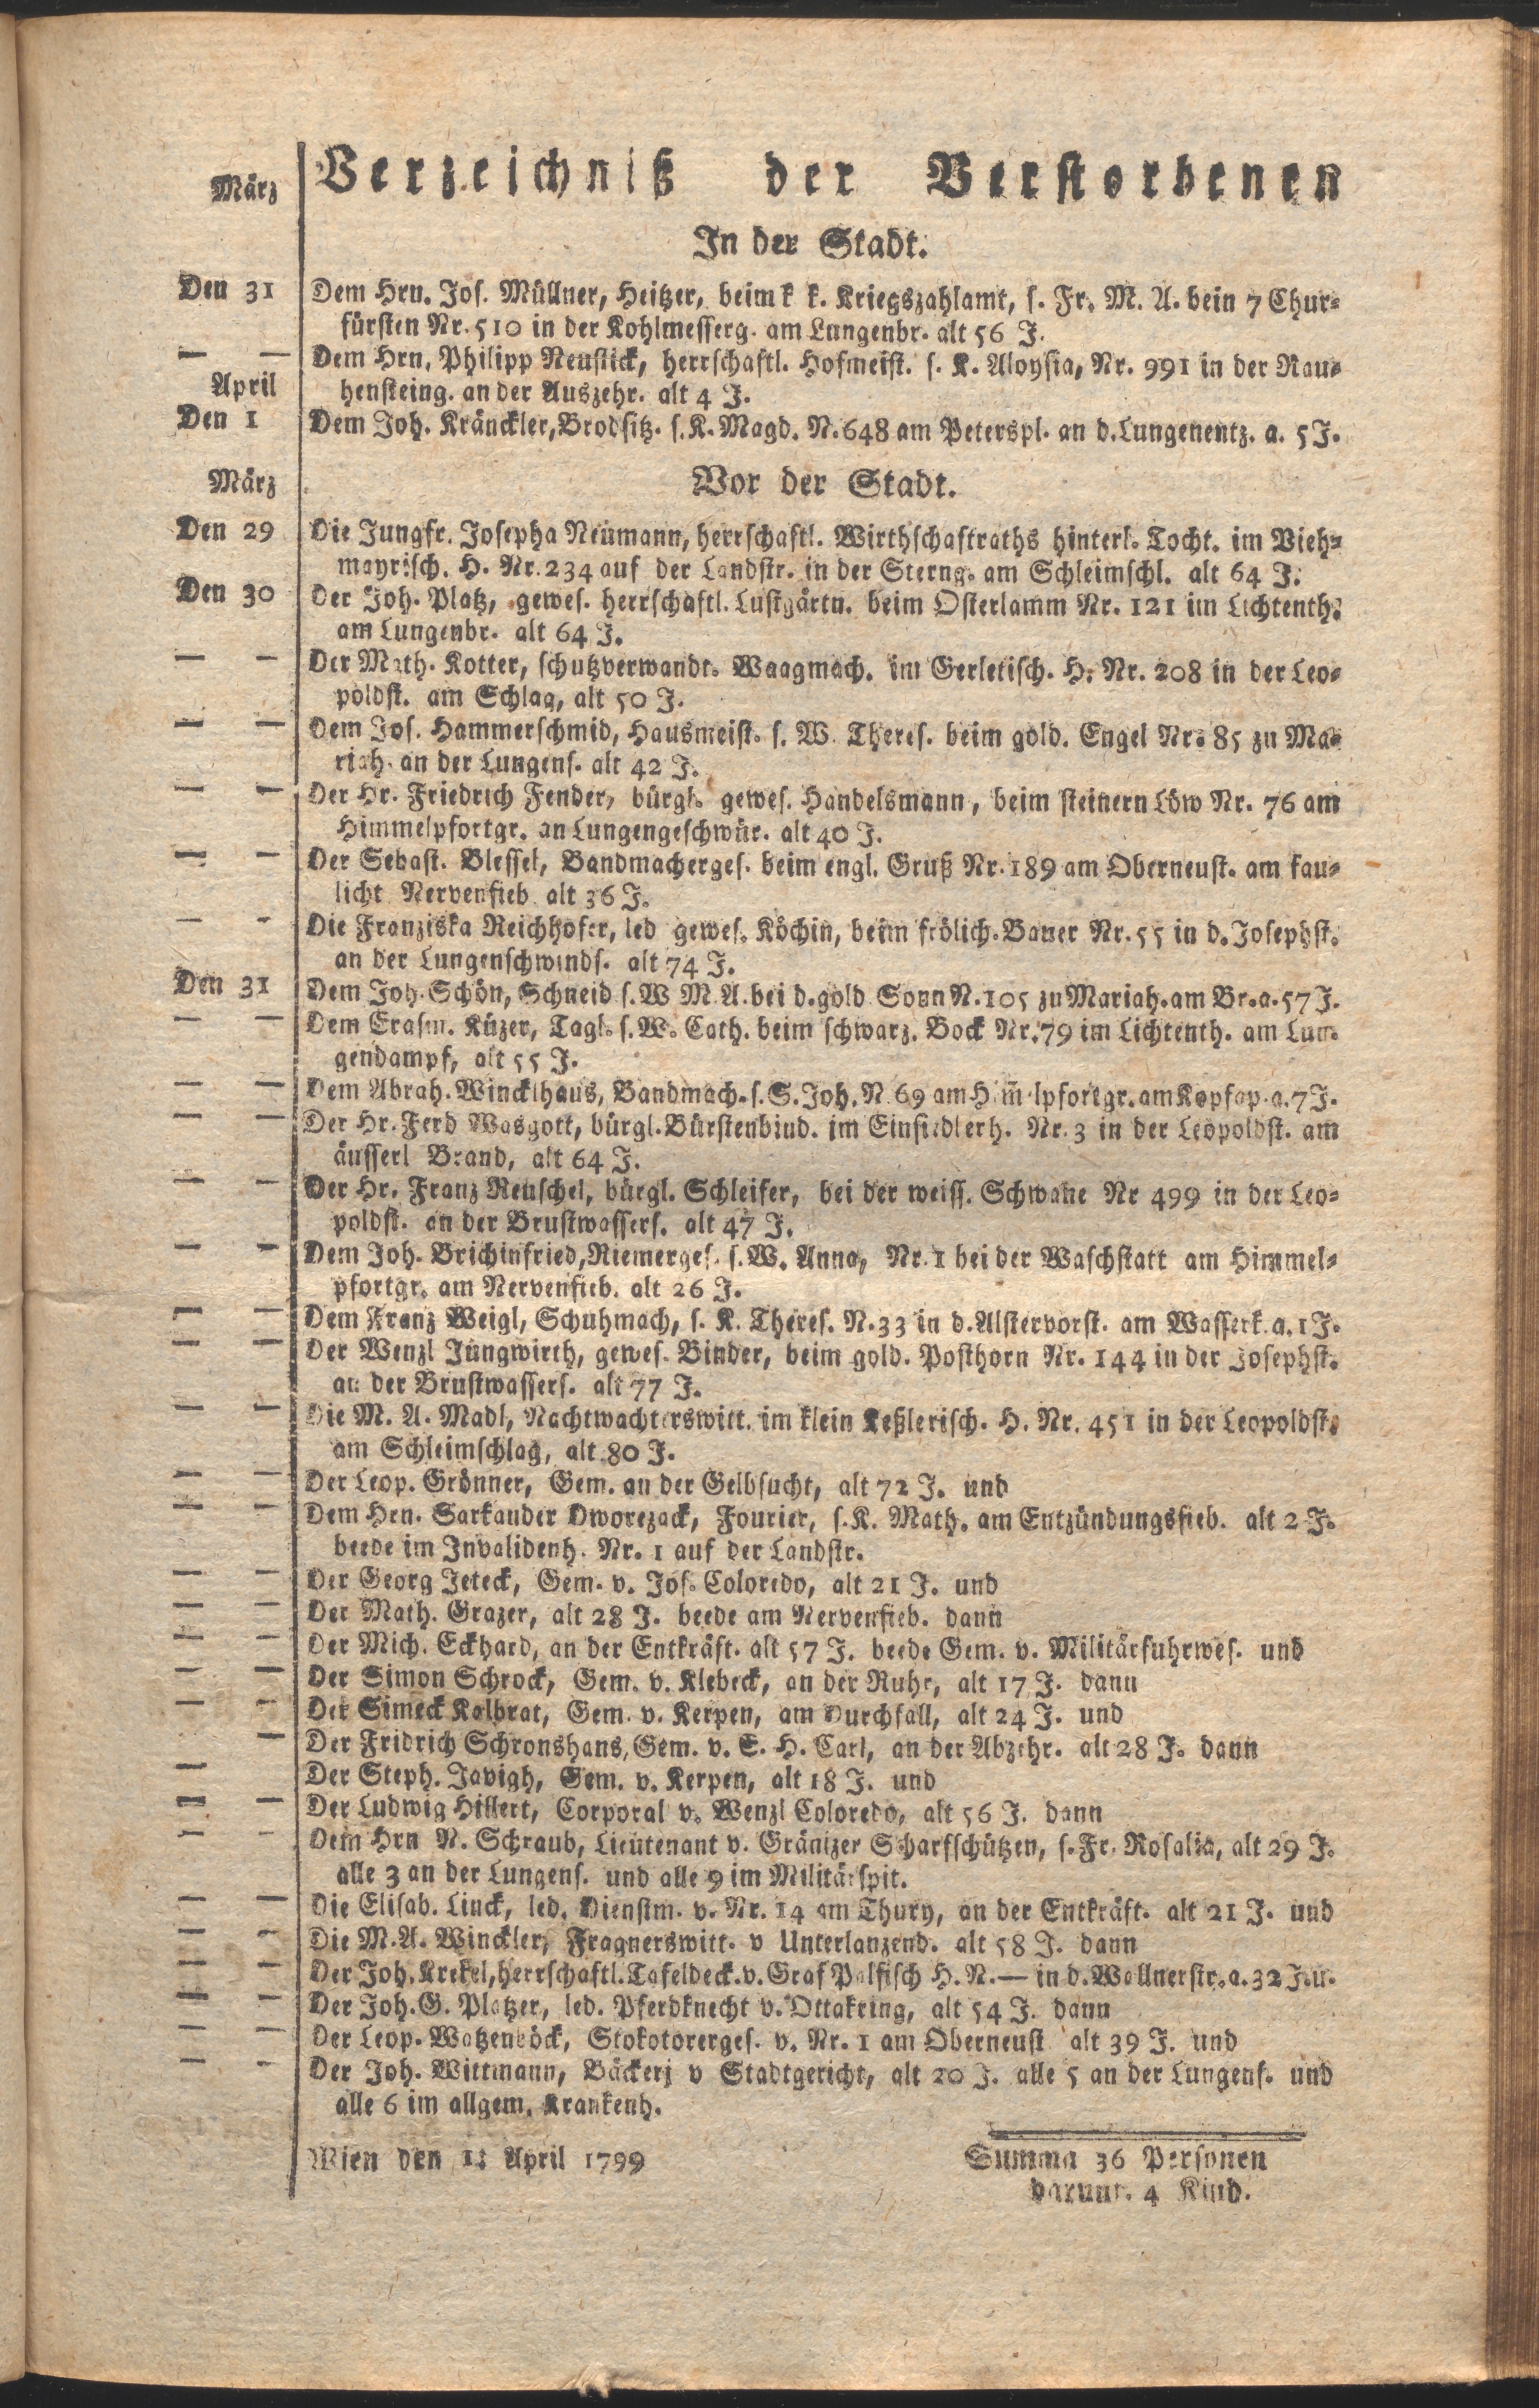 März Verzeichniß der Verstorbenen
In der Stadt.
Den 31 Dem Hrn. Jos. Müllner, Heitzer, beim k k. Kriegszahlamt, s. Fr. M. A. bein 7 Chur-
fürsten Nr. 510 in der Kohlmesserg. am Lungenbr. alt 56 J.
— — Dem Hrn. Philipp Neustick, herrschaftl. Hofmeist. s. K. Aloysia, Nr. 991 in der Rau-
April hensteing. an der Auszehr. alt 4 J.
Den 1 Dem Joh. Kränckler, Brodsitz. s. K. Magd. N. 648 am Peterspl. an d. Lungenentz. a. 5 J.
März Vor der Stadt.
Den 29 Die Jungfr. Josepha Neumann, herrschaftl. Wirthschaftraths hinterl. Tocht. im Vieh-
mayrisch. H. Nr. 234 auf der Landstr. in der Sterng. am Schleimschl. alt 64 J.
Den 30 Der Joh. Platz, gewes. herrschaftl. Lustgärtn. beim Osterlamm Nr. 121 im Lichtenth.
am Lungenbr. alt 64 J.
— — Der Math. Kotter, schutzverwandt. Waagmach. im Gerletisch. H. Nr. 208 in der Leo-
poldst. am Schlag, alt 50 J.
— — Dem Jos. Hammerschmid, Hausmeist. s. W. Theres. beim gold. Engel Nr. 85 zu Ma-
riah. an der Lungens. alt 42 J.
— — Der Hr. Friedrich Fender, bürgl. gewes. Handelsmann, beim steinern Löw Nr. 76 am
Himmelpfortgr. an Lungengeschwür. alt 40 J.
— — Der Sebast. Blessel, Bandmacherges. beim engl. Gruß Nr. 189 am Oberneust. am fau-
licht Nervenfieb alt 36 J.
— — Die Franziska Reichhofer, led gewes. Köchin, beim frölich. Bauer Nr. 55 in d. Josephst.
an der Lungenschwinds. alt 74 J.
Den 31 Dem Joh. Schön, Schneid s. W M. A. bei d. gold Sonn N. 105 zu Mariah. am Br. a. 57 J.
— — Dem Erasm. Küzer, Tagl. s. W. Cath. beim schwarz. Bock Nr. 79 im Lichtenth. am Lun-
gendampf, alt 55 J.
— — Dem Abrah. Wincklhaus, Bandmach. s. S. Joh. N 69 am Him̅elpfortgr. am Kopfap. a. 7 J.
— — Der Hr. Ferd Wasgott, bürgl. Bürstenbind. im Einsiedlerh. Nr. 3 in der Leopoldst. am
äusserl Brand, alt 64 J.
— — Der Hr. Franz Reuschel, bürgl. Schleifer, bei der weiss. Schwane Nr 499 in der Leo-
poldst. an der Brustwassers. alt 47 J.
— — Dem Joh. Brichinfried, Riemerges. s. W. Anna, Nr. 1 bei der Waschstatt am Himmel-
pfortgr. am Nervenfieb. alt 26 J.
— — Dem Franz Weigl, Schuhmach, s. K. Theres. N. 33 in d. Alstervorst. am Wasserk. a. 1 J.
— — Der Wenzl Jungwirth, gewes. Binder, beim gold. Posthorn Nr. 144 in der Josephst.
an der Brustwassers. alt 77 J.
— — Die M. A. Madl, Nachtwachterswitt. im klein Keßlerisch. H. Nr. 451 in der Leopoldst.
am Schleimschlag, alt 80 J.
— — Der Leop. Grönner, Gem. an der Gelbsucht, alt 72 J. und
— — Dem Hrn. Sarkander Dworezack, Fourier, s. K. Math. am Entzündungsfieb. alt 2 J.
beede im Invalidenh. Nr. 1 auf der Landstr.
— — Der Georg Jeteck, Gem. v. Jos. Coloredo, alt 21 J. und
— — Der Math. Grazer, alt 28 J. beede am Nervenfieb. dann
— — Der Mich. Eckhard, an der Entkräft. alt 57 J. beede Gem. v. Militärfuhrwes. und
— — Der Simon Schrock, Gem. v. Klebeck, an der Ruhr, alt 17 J. dann
— — Der Simeck Kalbrat, Gem. v. Kerpen, am Durchfall, alt 24 J. und
— Der Fridrich Schronshans, Gem. v. E. H. Carl, an der Abzehr. alt 28 J. dann
— Der Steph. Javigh, Gem. v. Kerpen, alt 18 J. und
— — Der Ludwig Hillert, Corporal v. Wenzl Coloredo, alt 56 J. dann
— — Dem Hrn N. Schraub, Lieutenant v. Gränizer Scharfschützen, s. Fr. Rosalia, alt 29 J.
alle 3 an der Lungens. und alle 9 im Militärspit.
— — Die Elisab. Linck, led. Dienstm. v. Nr. 14 am Thury, an der Entkräft. alt 21 J. und
— — Die M. A. Winckler, Fragnerswitt. v Unterlanzend. alt 58 J. dann
— — Der Joh. Krekel, herrschaftl. Tafeldeck. v. Graf Palfisch H. N. — in d. Wallnerstr. a. 32 J. u.
— — Der Joh. G. Platzer, led. Pferdknecht v. Ottakring, alt 54 J. dann
— — Der Leop. Watzenböck, Stokotorerges. v. Nr. 1 am Oberneust alt 39 J. und
— — Der Joh. Wittmann, Bäckerj v Stadtgericht, alt 20 J. alle 5 an der Lungens. und
alle 6 im allgem. Krankenh.
Wien den 1: April 1799 Summa 36 Personen
darunt. 4 Kind.